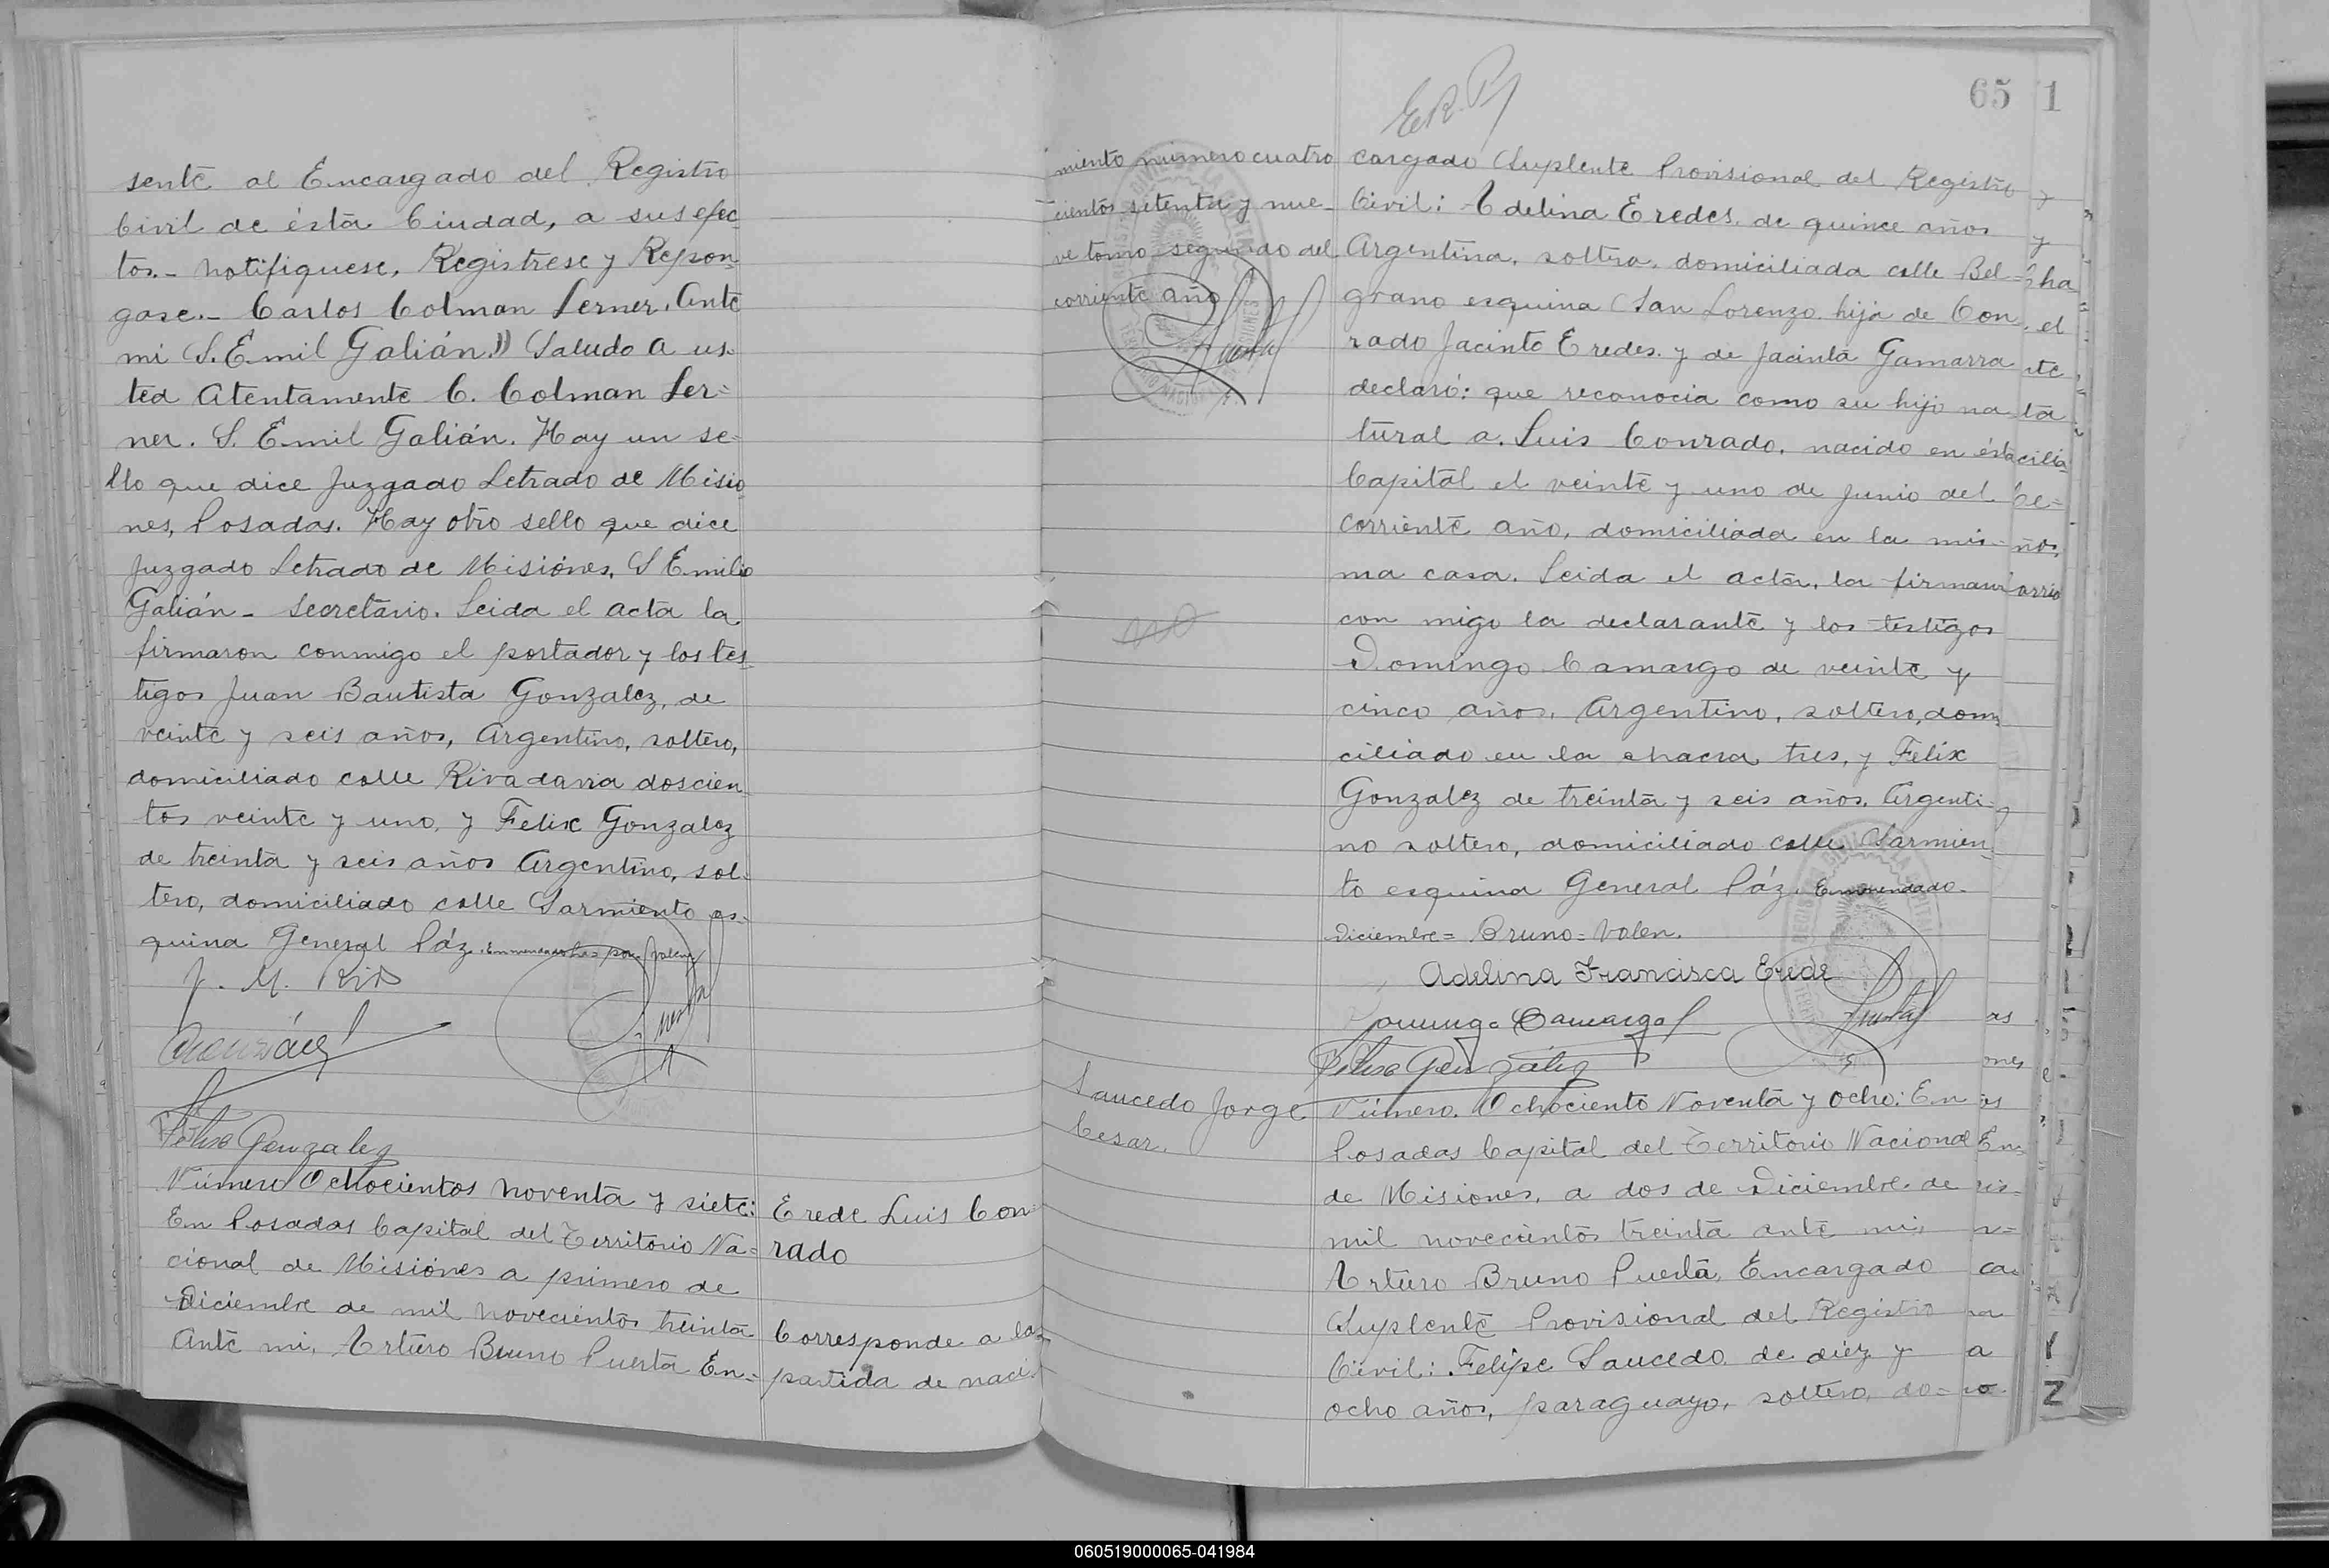 sente al Encargado del Registro
Civil de ésta Ciudad, a sus efec
tos.- Notifiquese, Registrese y Repon
gase.- Carlos Colman Lerner. Ante
mi S. Emil Galián.)) Saludo a us-
ted Atentamente C. Colman Ler=
ner. S. Emil Galián. Hay un se-
llo que dice Juzgado Letrado de Misio
nes, Posadas. Hay otro sello que dice
Juzgado Letrado de Misiónes, S Emilio
Galián - Secretario. Leida el acta la
firmaron conmigo el portador y los tes
tigos Juan Bautista Gonzalez, de
veinte y seis años, Argentino, soltero,
domiciliado calle Rivadavia doscien
tos veinte y uno, y Felix Gonzalez
de treinta y seis años Argentino, sol-
tero, domiciliado calle Sarmiento es-
quina General Páz.
Felix Gonzalez
Número Ochocientos noventa y siete:
En Posadas Capital del Territorio Na=
cional de Misiónes a primero de
Diciembre de mil novecientos treinta
Ante mi, Arturo Bruno Puerta En=
Erede Luis Con
rado
Corresponde a la
partida de naci
miento número cuatro
cientos setenta y nue-
ve tomo segundo del
corriente año
65
1
cargado Suplente Provisional del Registro
Civil: Adelina Eredes. de quince años
Argentina, soltera, domiciliada calle Bel=
grano esquina San Lorenzo, hija de Con
rado Jacinto Eredes. y de Jacinta Gamarra
declaró: que reconocia como su hijo na
tural a. Luis Conrado, nacido en ésta
Capital el veinte y uno de Junio del
corriente año, domiciliada en la mis=
ma casa. Leida el acta, la firman
con migo la declarante y los testigos
Domingo Camargo de veinte y
cinco años, Argentino, soltero, domi
ciliado en la chacra tres, y Felix
Gonzalez de treinta y seis años, Argenti-
no soltero, domiciliado calle Sarmien
to esquina General Páz. Enmendado-
Diciembre= Bruno= Valen.
Adelina Francisca Erede
Domingo Camargo
Felix Gonzalez
Saucedo Jorge
Cesar.
Número. Ochociento Noventa y Ocho: En
Posadas Capital del Territorio Nacional
de Misiones, a dos de Diciembre de
mil novecientos treinta ante mi,
Arturo Bruno Puerta, Encargado
Suplente Provisional del Registro
Civil: Felipe Saucedo, de diéz y
ocho años, paraguayo, soltero, do=
060519000065-041984